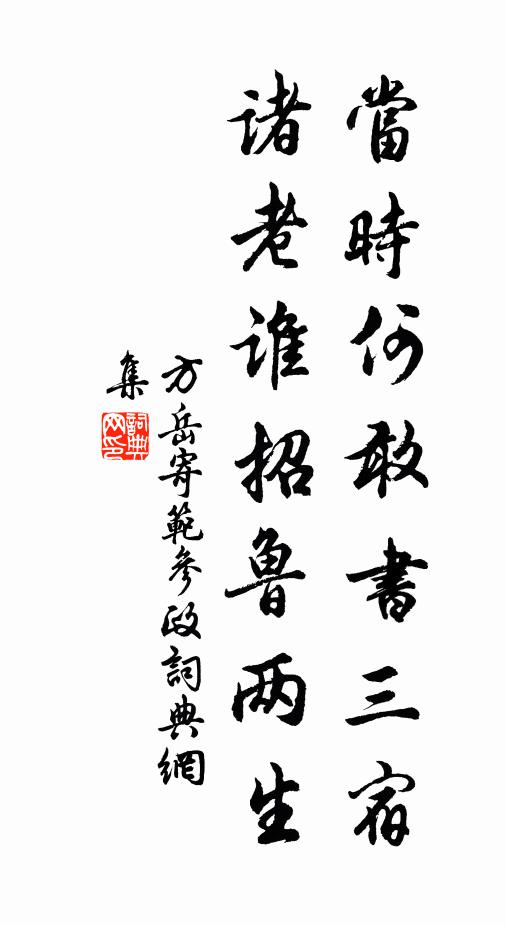 當時何敢書三宿
諸老誰招魯两生
方岳寄範參政詞典網
集
詞典网印